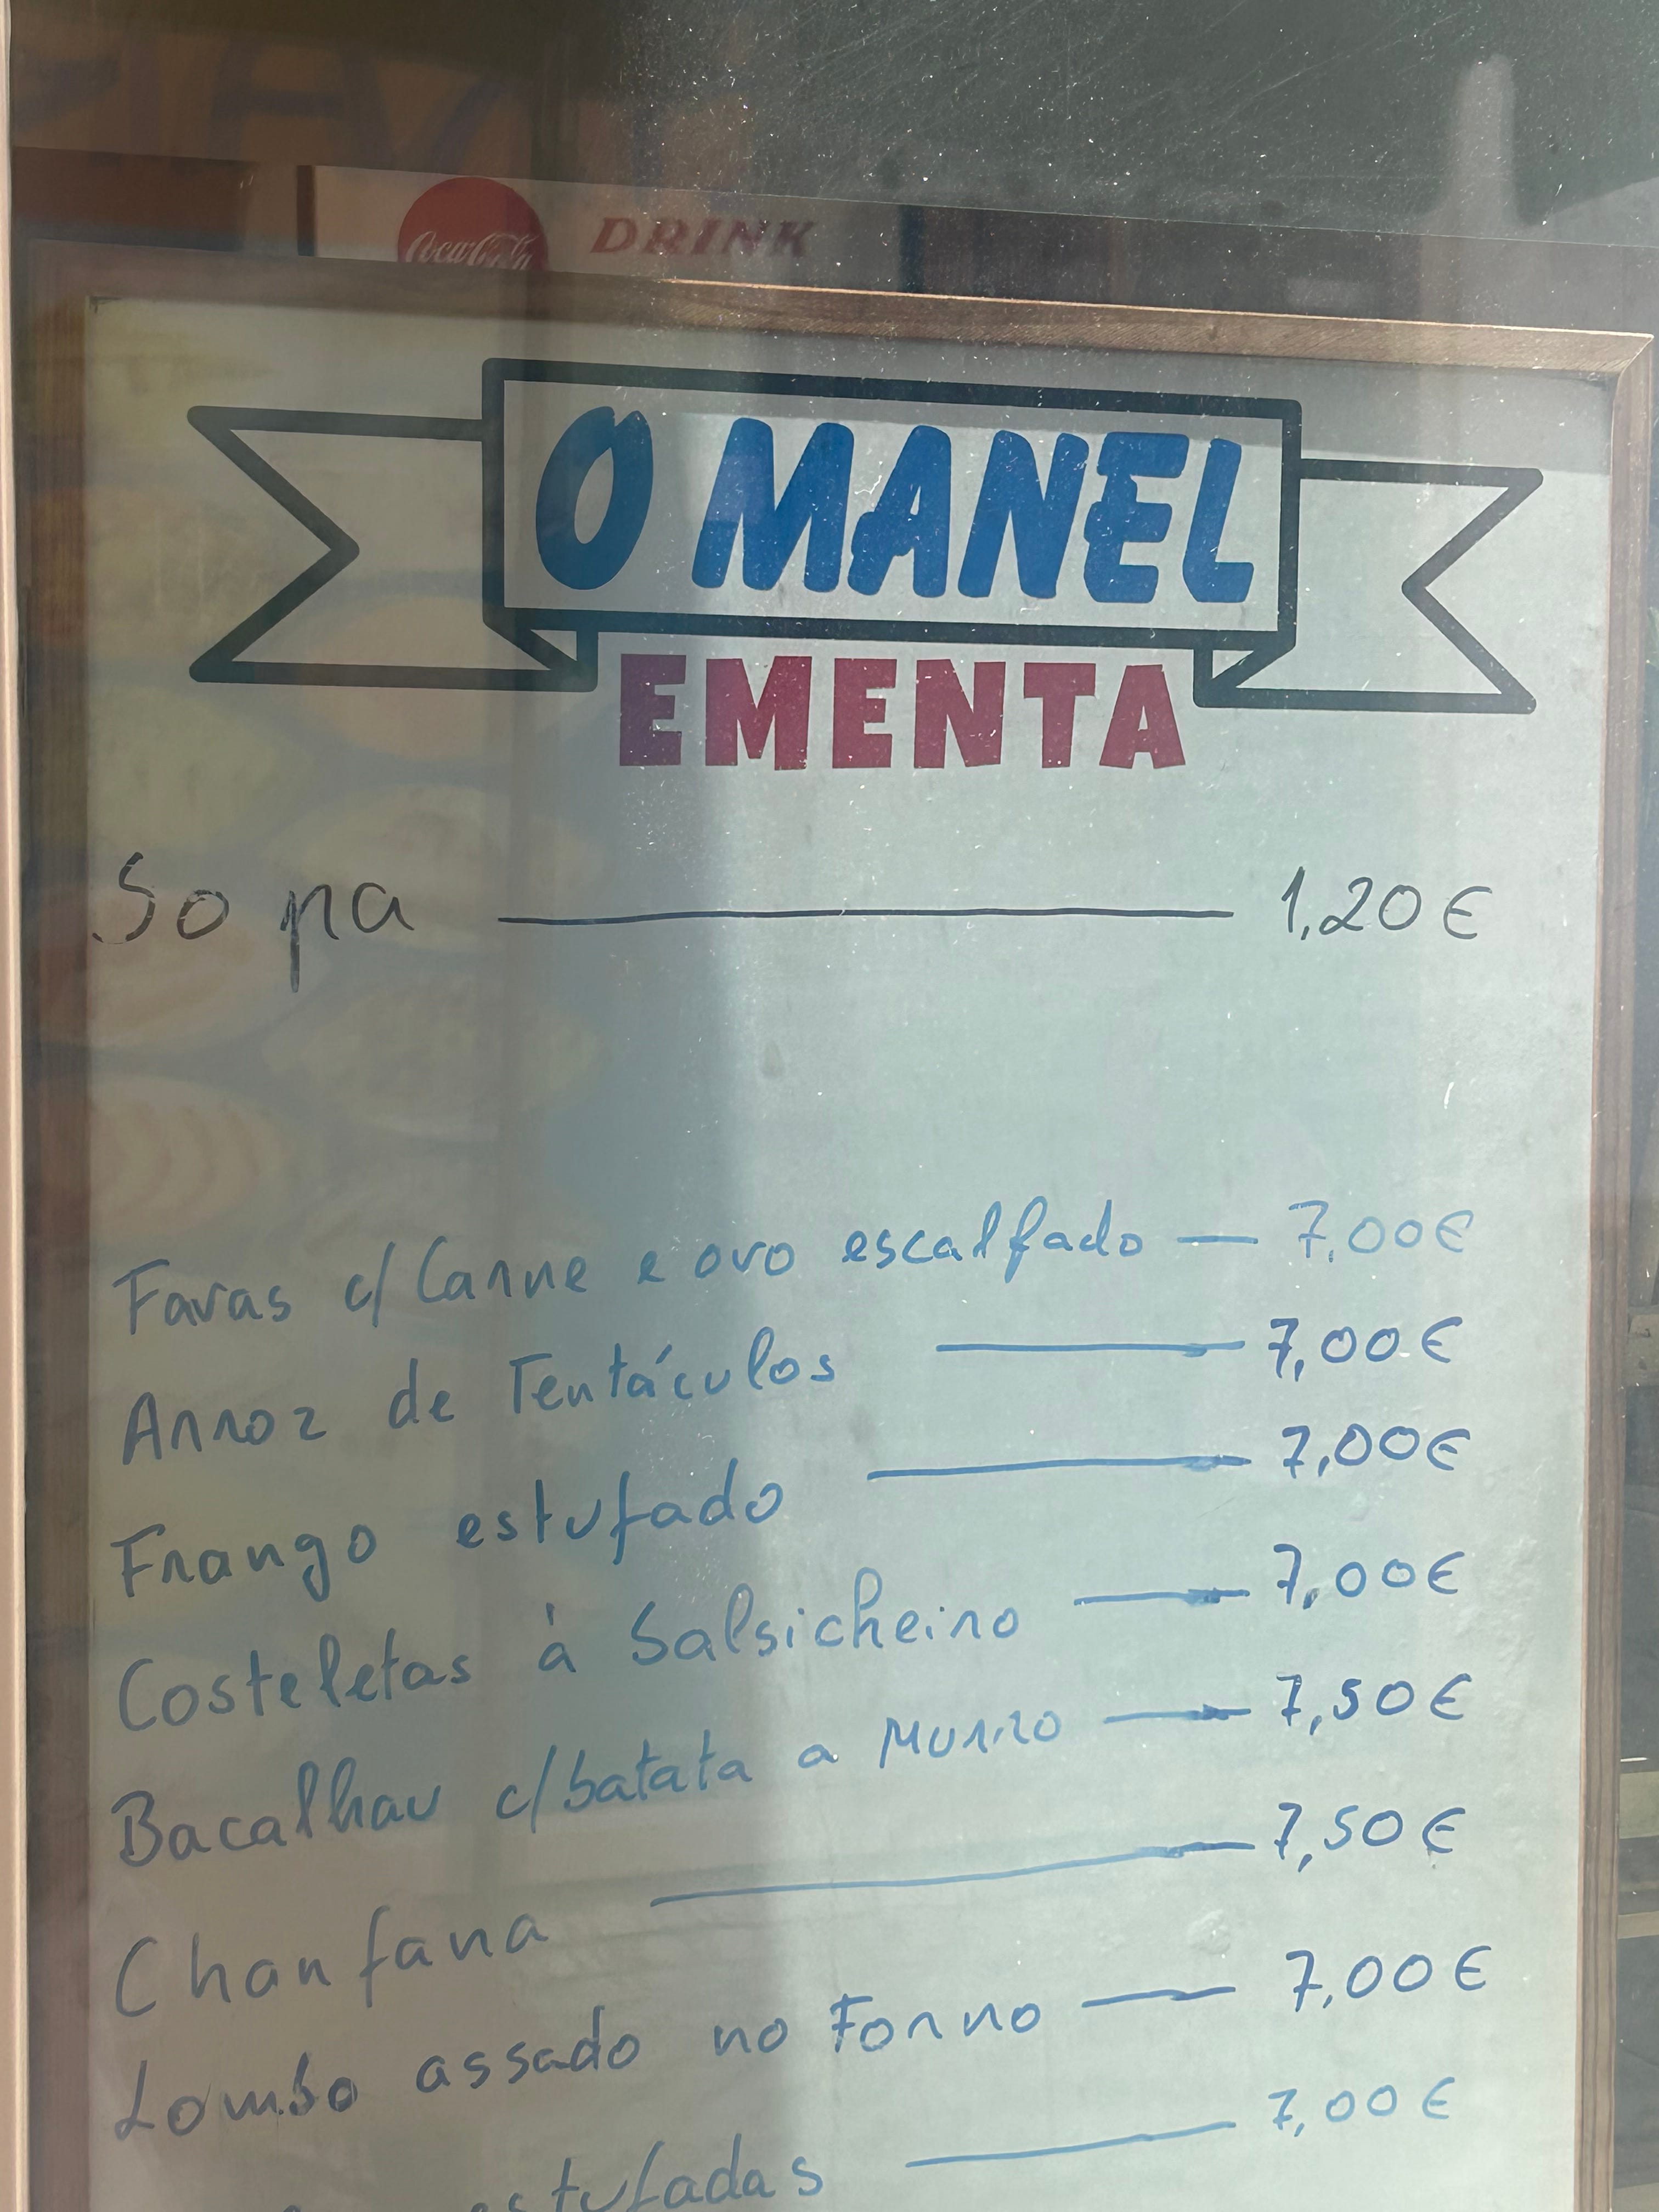 Coca-Cola DRINK
O MANEL
EMENTA
Sopa 1,20€
Favas c/ Carne e ovo escalfado — 7,00€
Arroz de Tentáculos — 7,00€
Frango estufado — 7,00€
Costeletas à Salsicheiro — 7,00€
Bacalhau c/batata a Murro — 7,50€
Chanfana — 7,50€
Lombo assado no Forno — 7,00€
estufadas — 7,00€